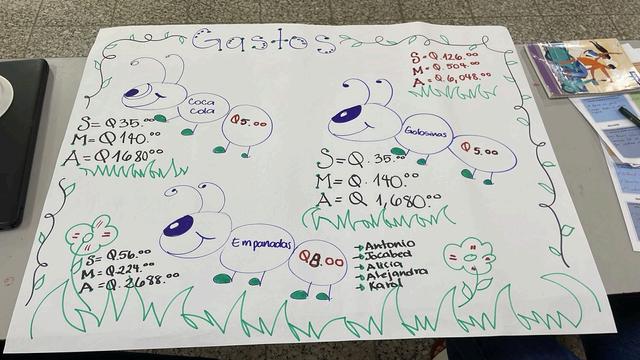 Gastos
S = Q.126.⁰⁰
M = Q.504.⁰⁰
A = Q.6,048.⁰⁰
Coca
Cola
Q5.⁰⁰
S = Q35⁰⁰
M = Q140.⁰⁰
A = Q1680⁰⁰
Golosinas
Q5.⁰⁰
S = Q. 35.⁰⁰
M = Q. 140.⁰⁰
A = Q 1,680.⁰⁰
Empanadas
Q8.00
S = Q.56.⁰⁰
M = Q.224.⁰⁰
A = Q.2688.⁰⁰
→ Antonio
→ Jocabed
→ Alicia
→ Alejandra
→ Karol